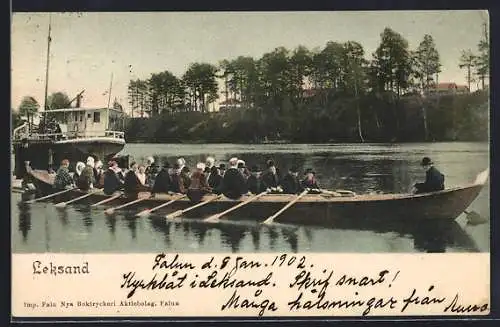 Leksand
Falun d. 8 Jan. 1902.
Kyrkbåt i Leksand. Skrif snart!
Många hälsningar från
Imp. Falu Nya Boktryckeri Aktiebolag, Falun